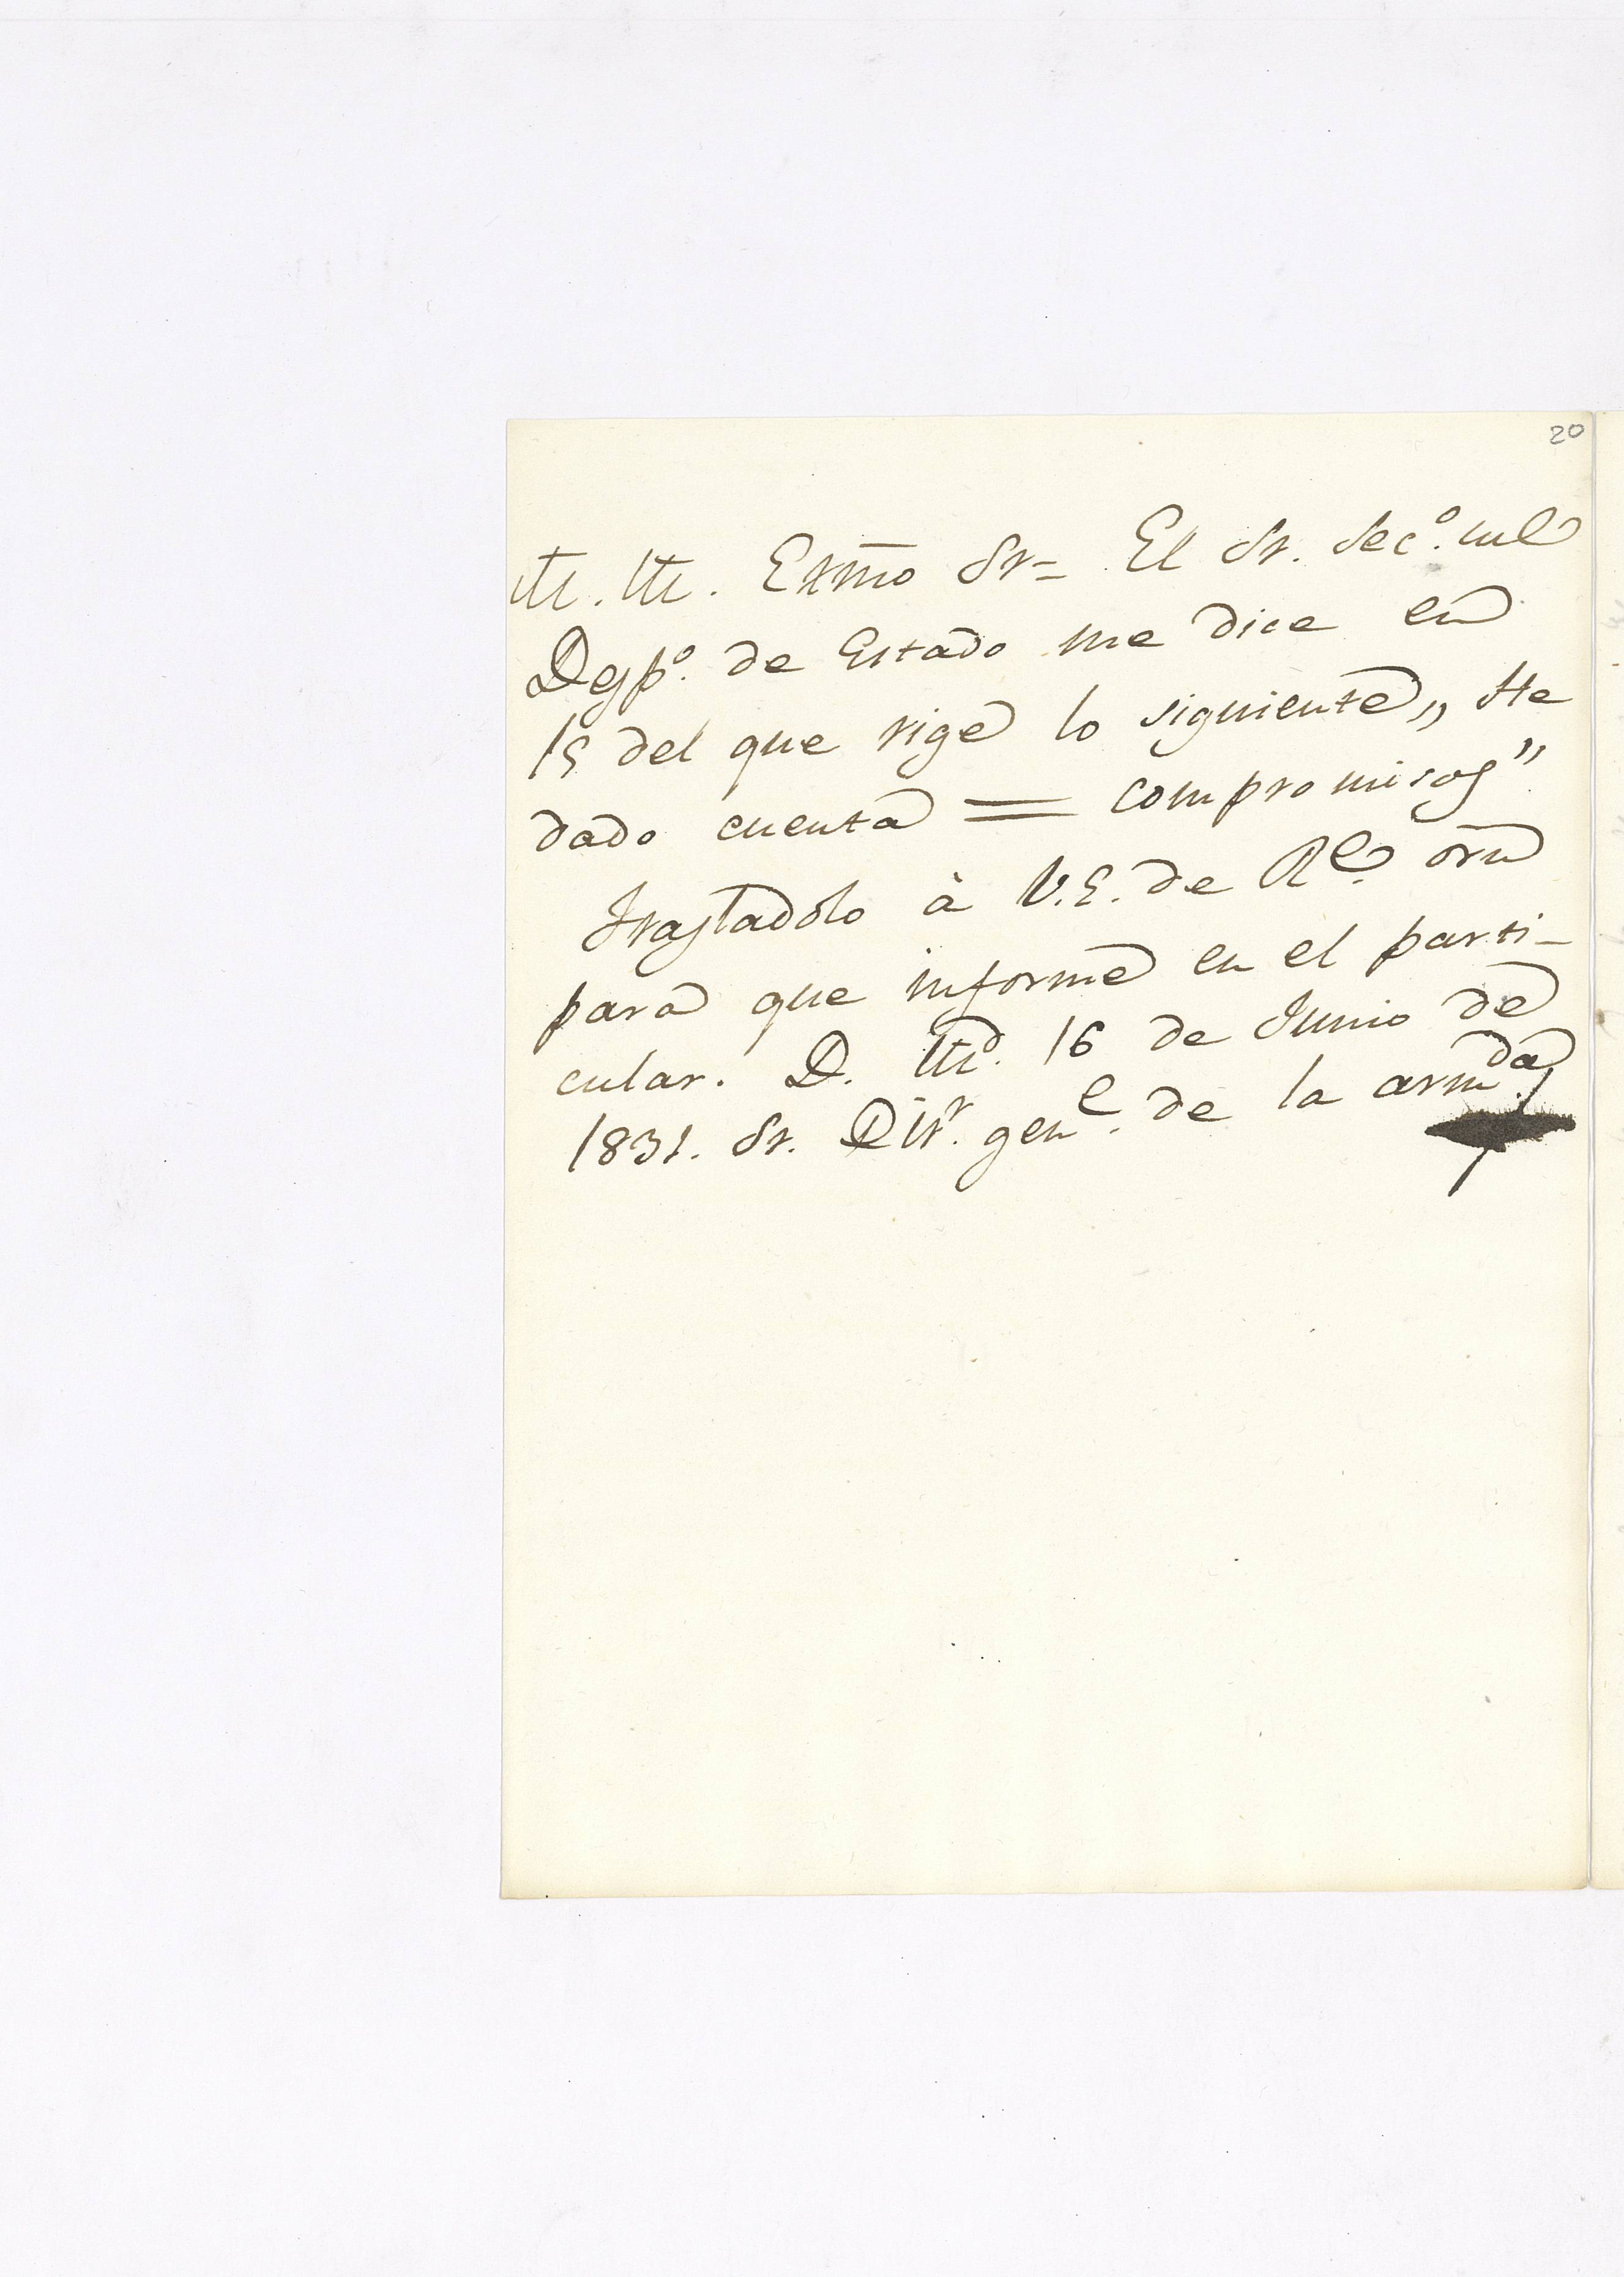 20
M. M. Exmo Sr= El Sr. Sec.º
Desp.º de Estado me dice en
15 del que rige lo siguiente „ He
dado cuenta = compromisos”
Trasladolo à V.E. de Rl. orn
para que informe en el parti-
cular. D. Md. 16 de Junio de
1831. Sr. Dir. genl. de la armda